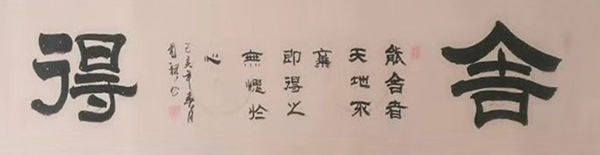 舍
能舍者
天地不
棄
即得之
無愧於
心
己亥年春月
得